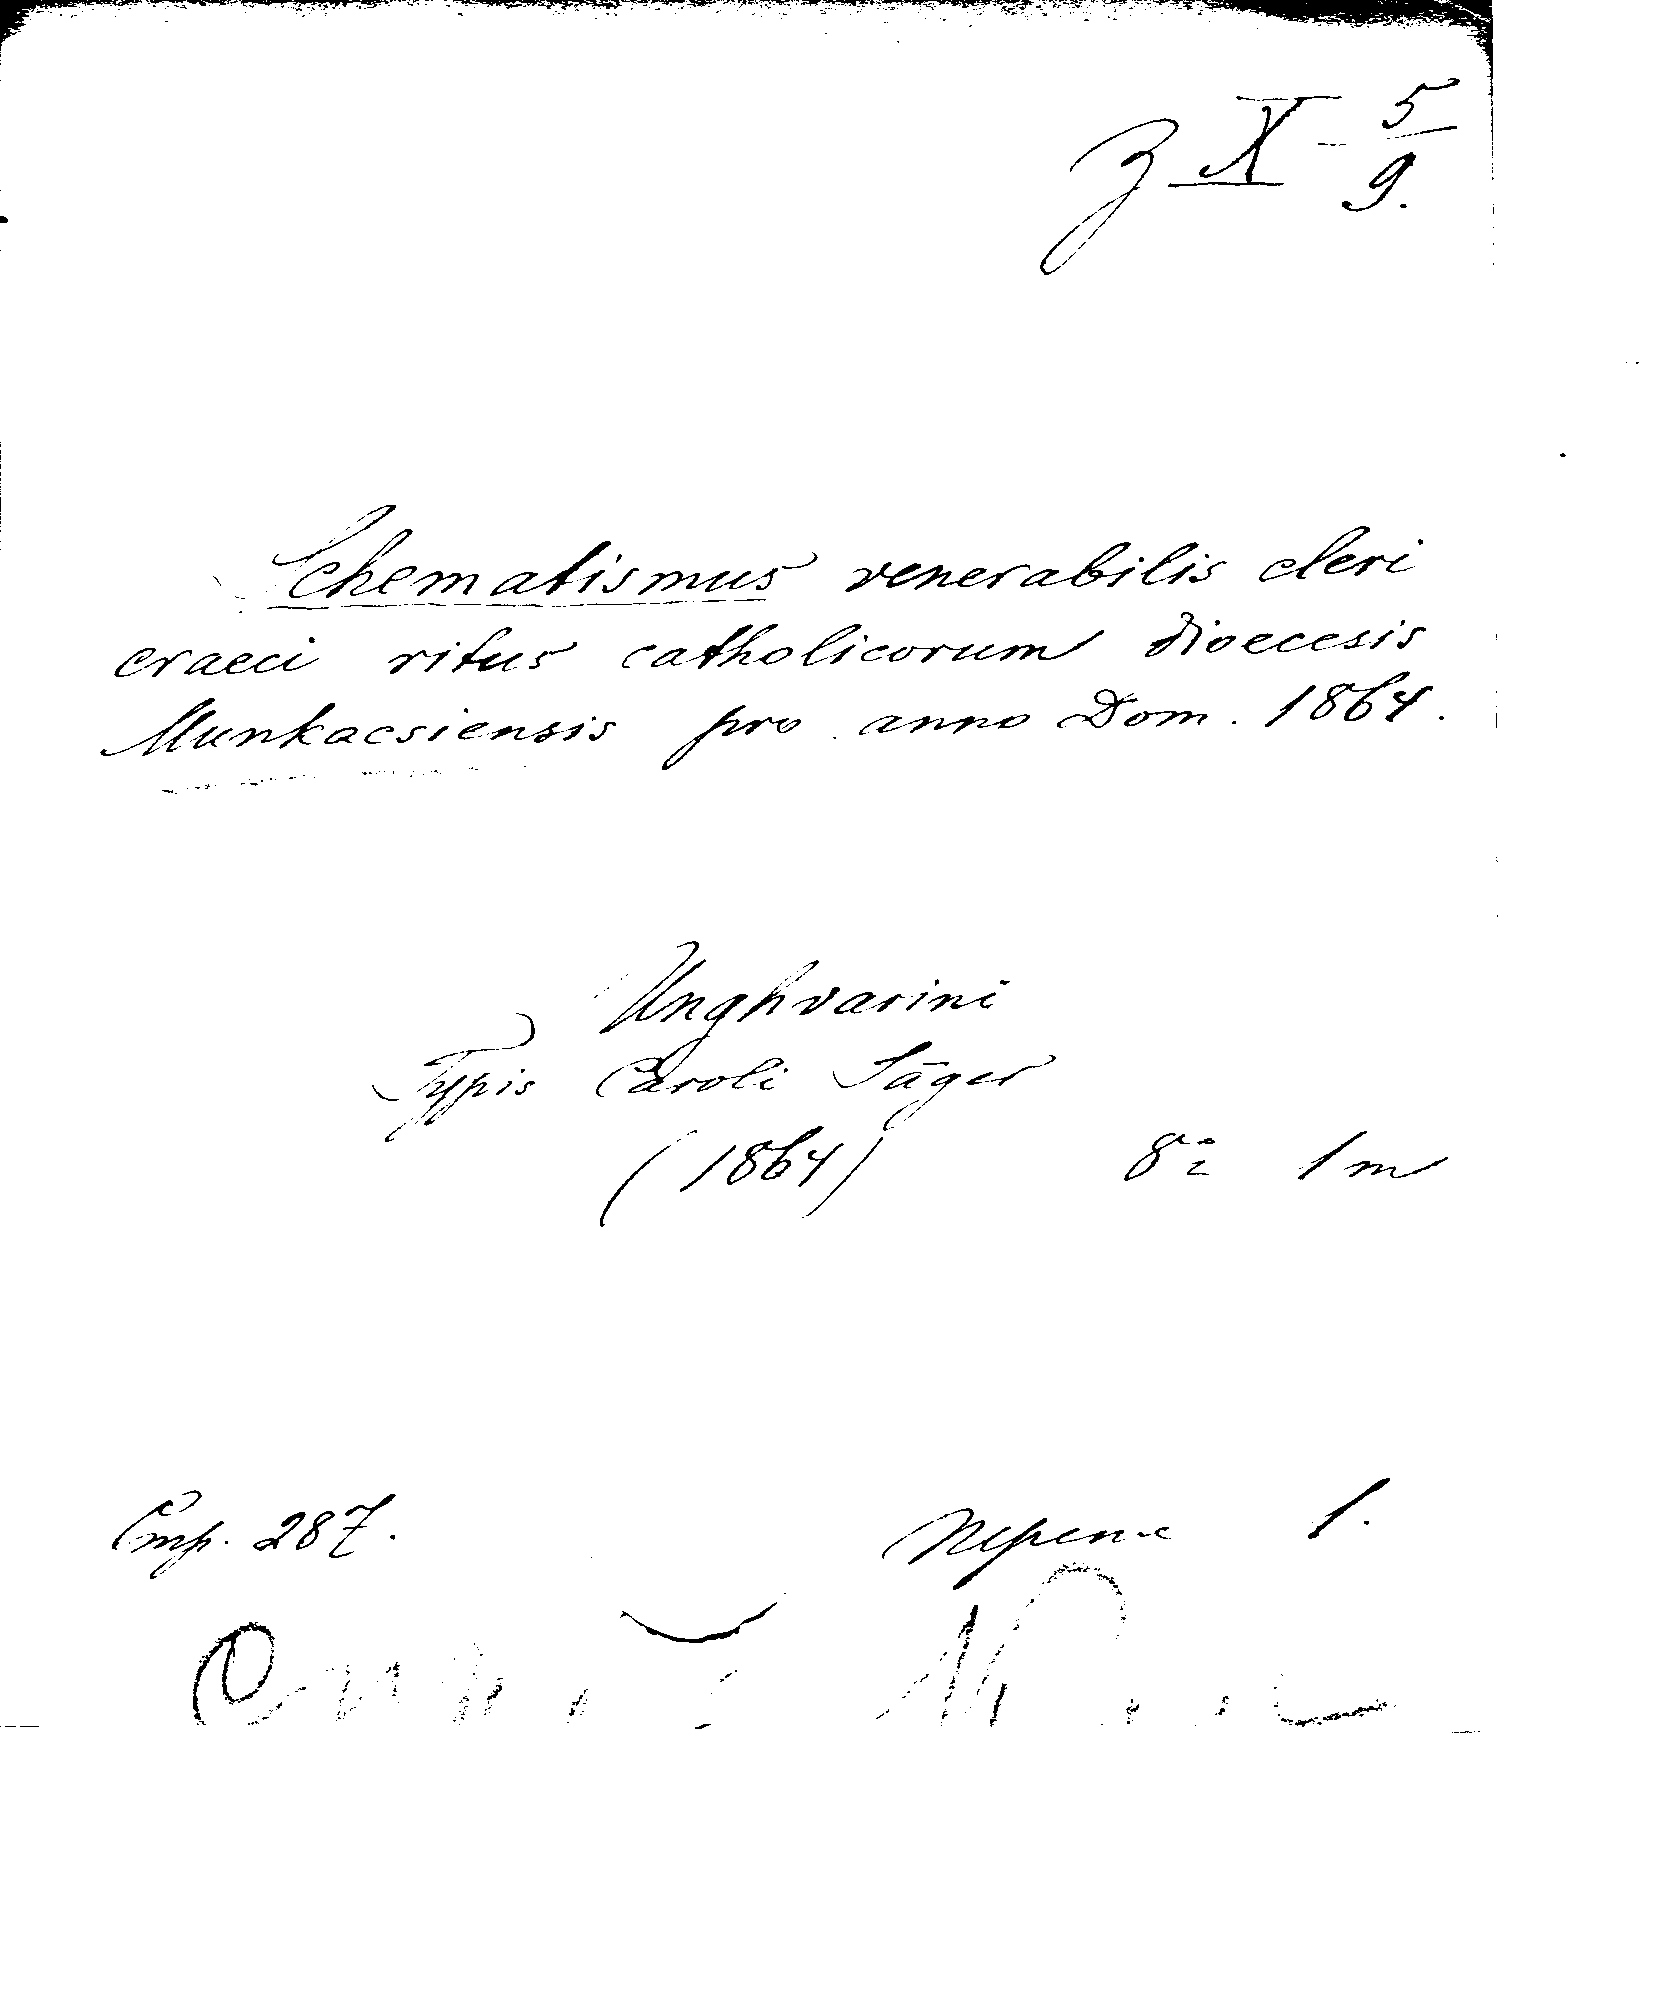 З X - 5/9.
Schematismus venerabilis cleri
craeci ritus catholicorum dioecesis
Munkacsiensis pro anno Dom. 1864.
Unghvarini
Typis Caroli Jäger
(1864) 8º 1 m
Стр. 287. Переп. 1.